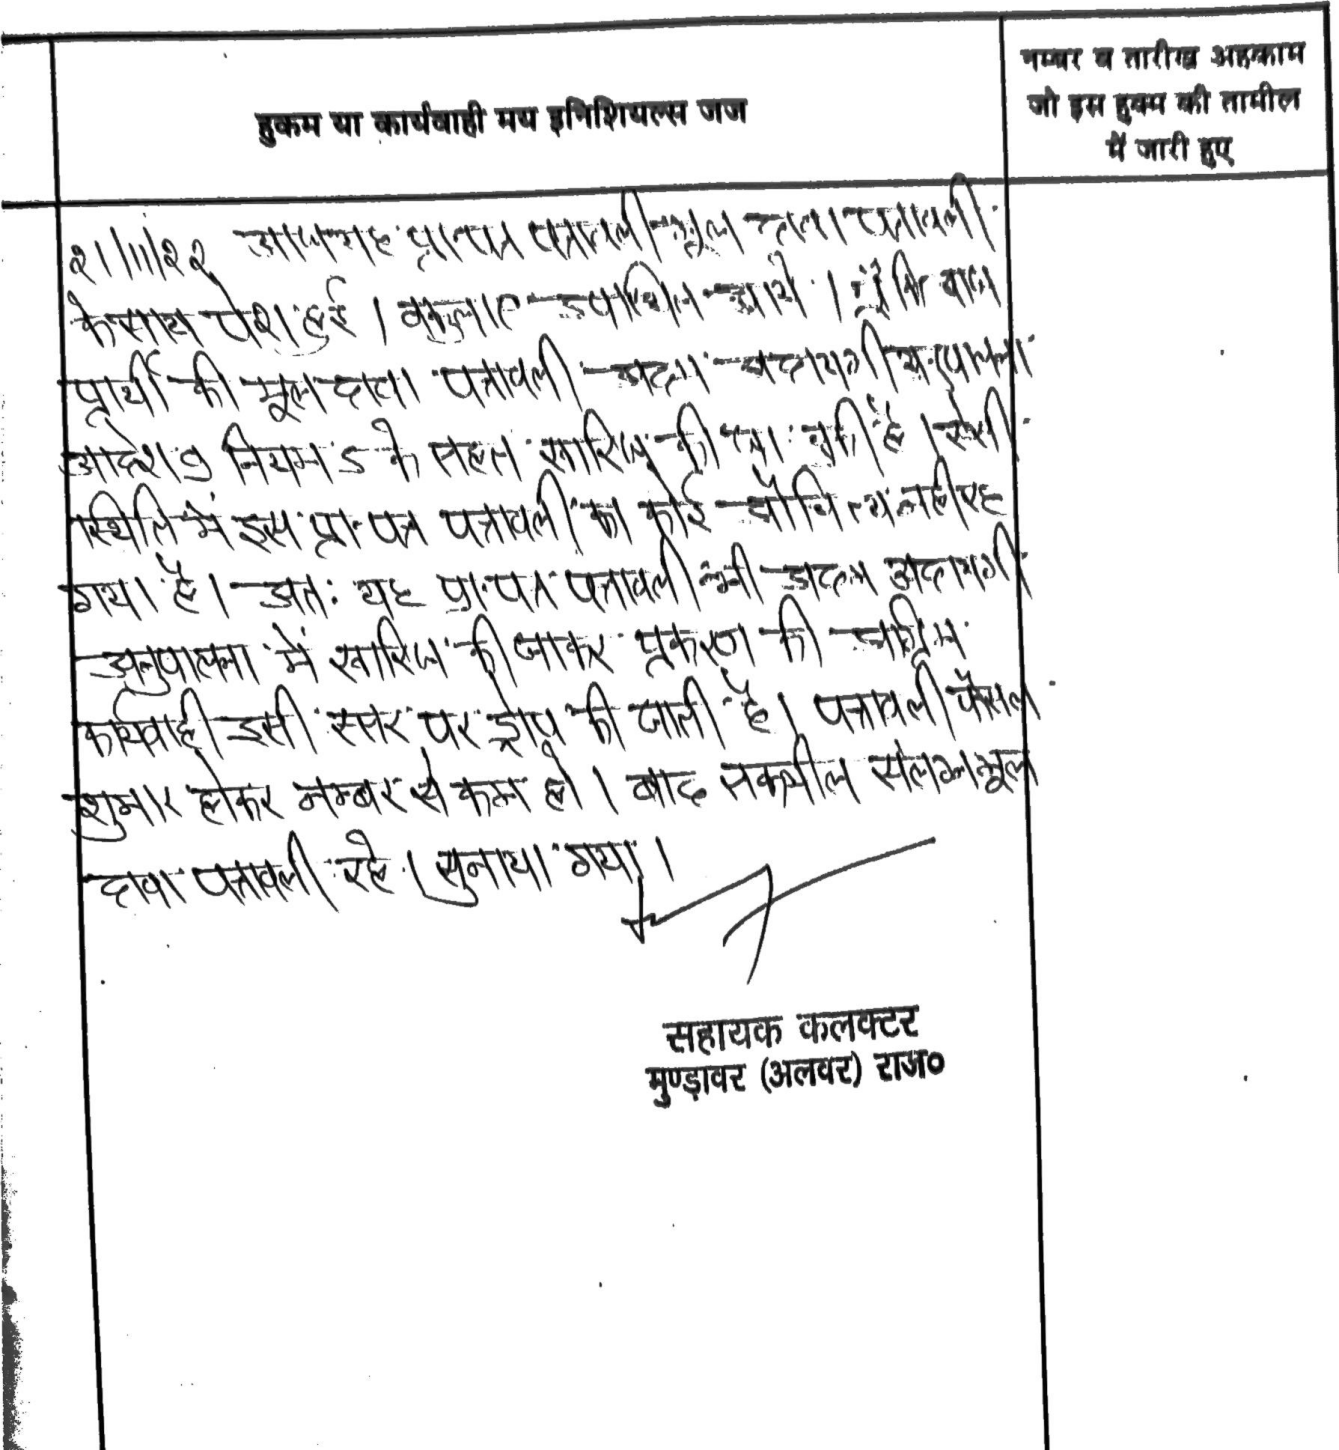 हुकम या कार्यवाही मय इनिशियल्स जज
नम्बर व तारीख अहकाम
जो इस हुक्म की तामील
में जारी हुए
२१/११/२२ आज यह प्रा.पत्र पत्रावली मूल दावा पत्रावली
के साथ पेश हुई । वकुलाए उपस्थित आये । चूंकि वाद
प्रार्थी की मूल दावा पत्रावली अदम अदायगी अनुपालना
आदेश 9 नियम 5 के तहत खारिज की जा चुकी है । ऐसी
स्थिति में इस प्रा.पत्र पत्रावली का कोई औचित्य नहीं रह
गया है । अतः यह प्रा.पत्र पत्रावली भी अदम अदायगी
अनुपालना में खारिज की जाकर प्रकरण की अग्रिम
कार्यवाही इसी स्तर पर ड्रोप की जाती है । पत्रावली फैसल
शुमार होकर नम्बर से कम हो । बाद तकमील संलग्न मूल
दावा पत्रावली रहे । सुनाया गया ।
सहायक कलक्टर
मुण्ड़ावर (अलवर) राज०